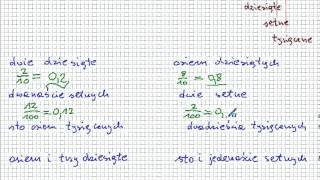 dziesiąte
setne
tysięczne
dwie dziesiąte
2/10 = 0,2
dwanaście setnych
12/100 = 0,12
sto osiem tysięcznych
osiem i trzy dziesiąte
osiem dziesiątych
8/10 = 0,8
dwie setne
2/100 = 0,
dwadzieścia tysięcznych
sto i jedenaście setnych